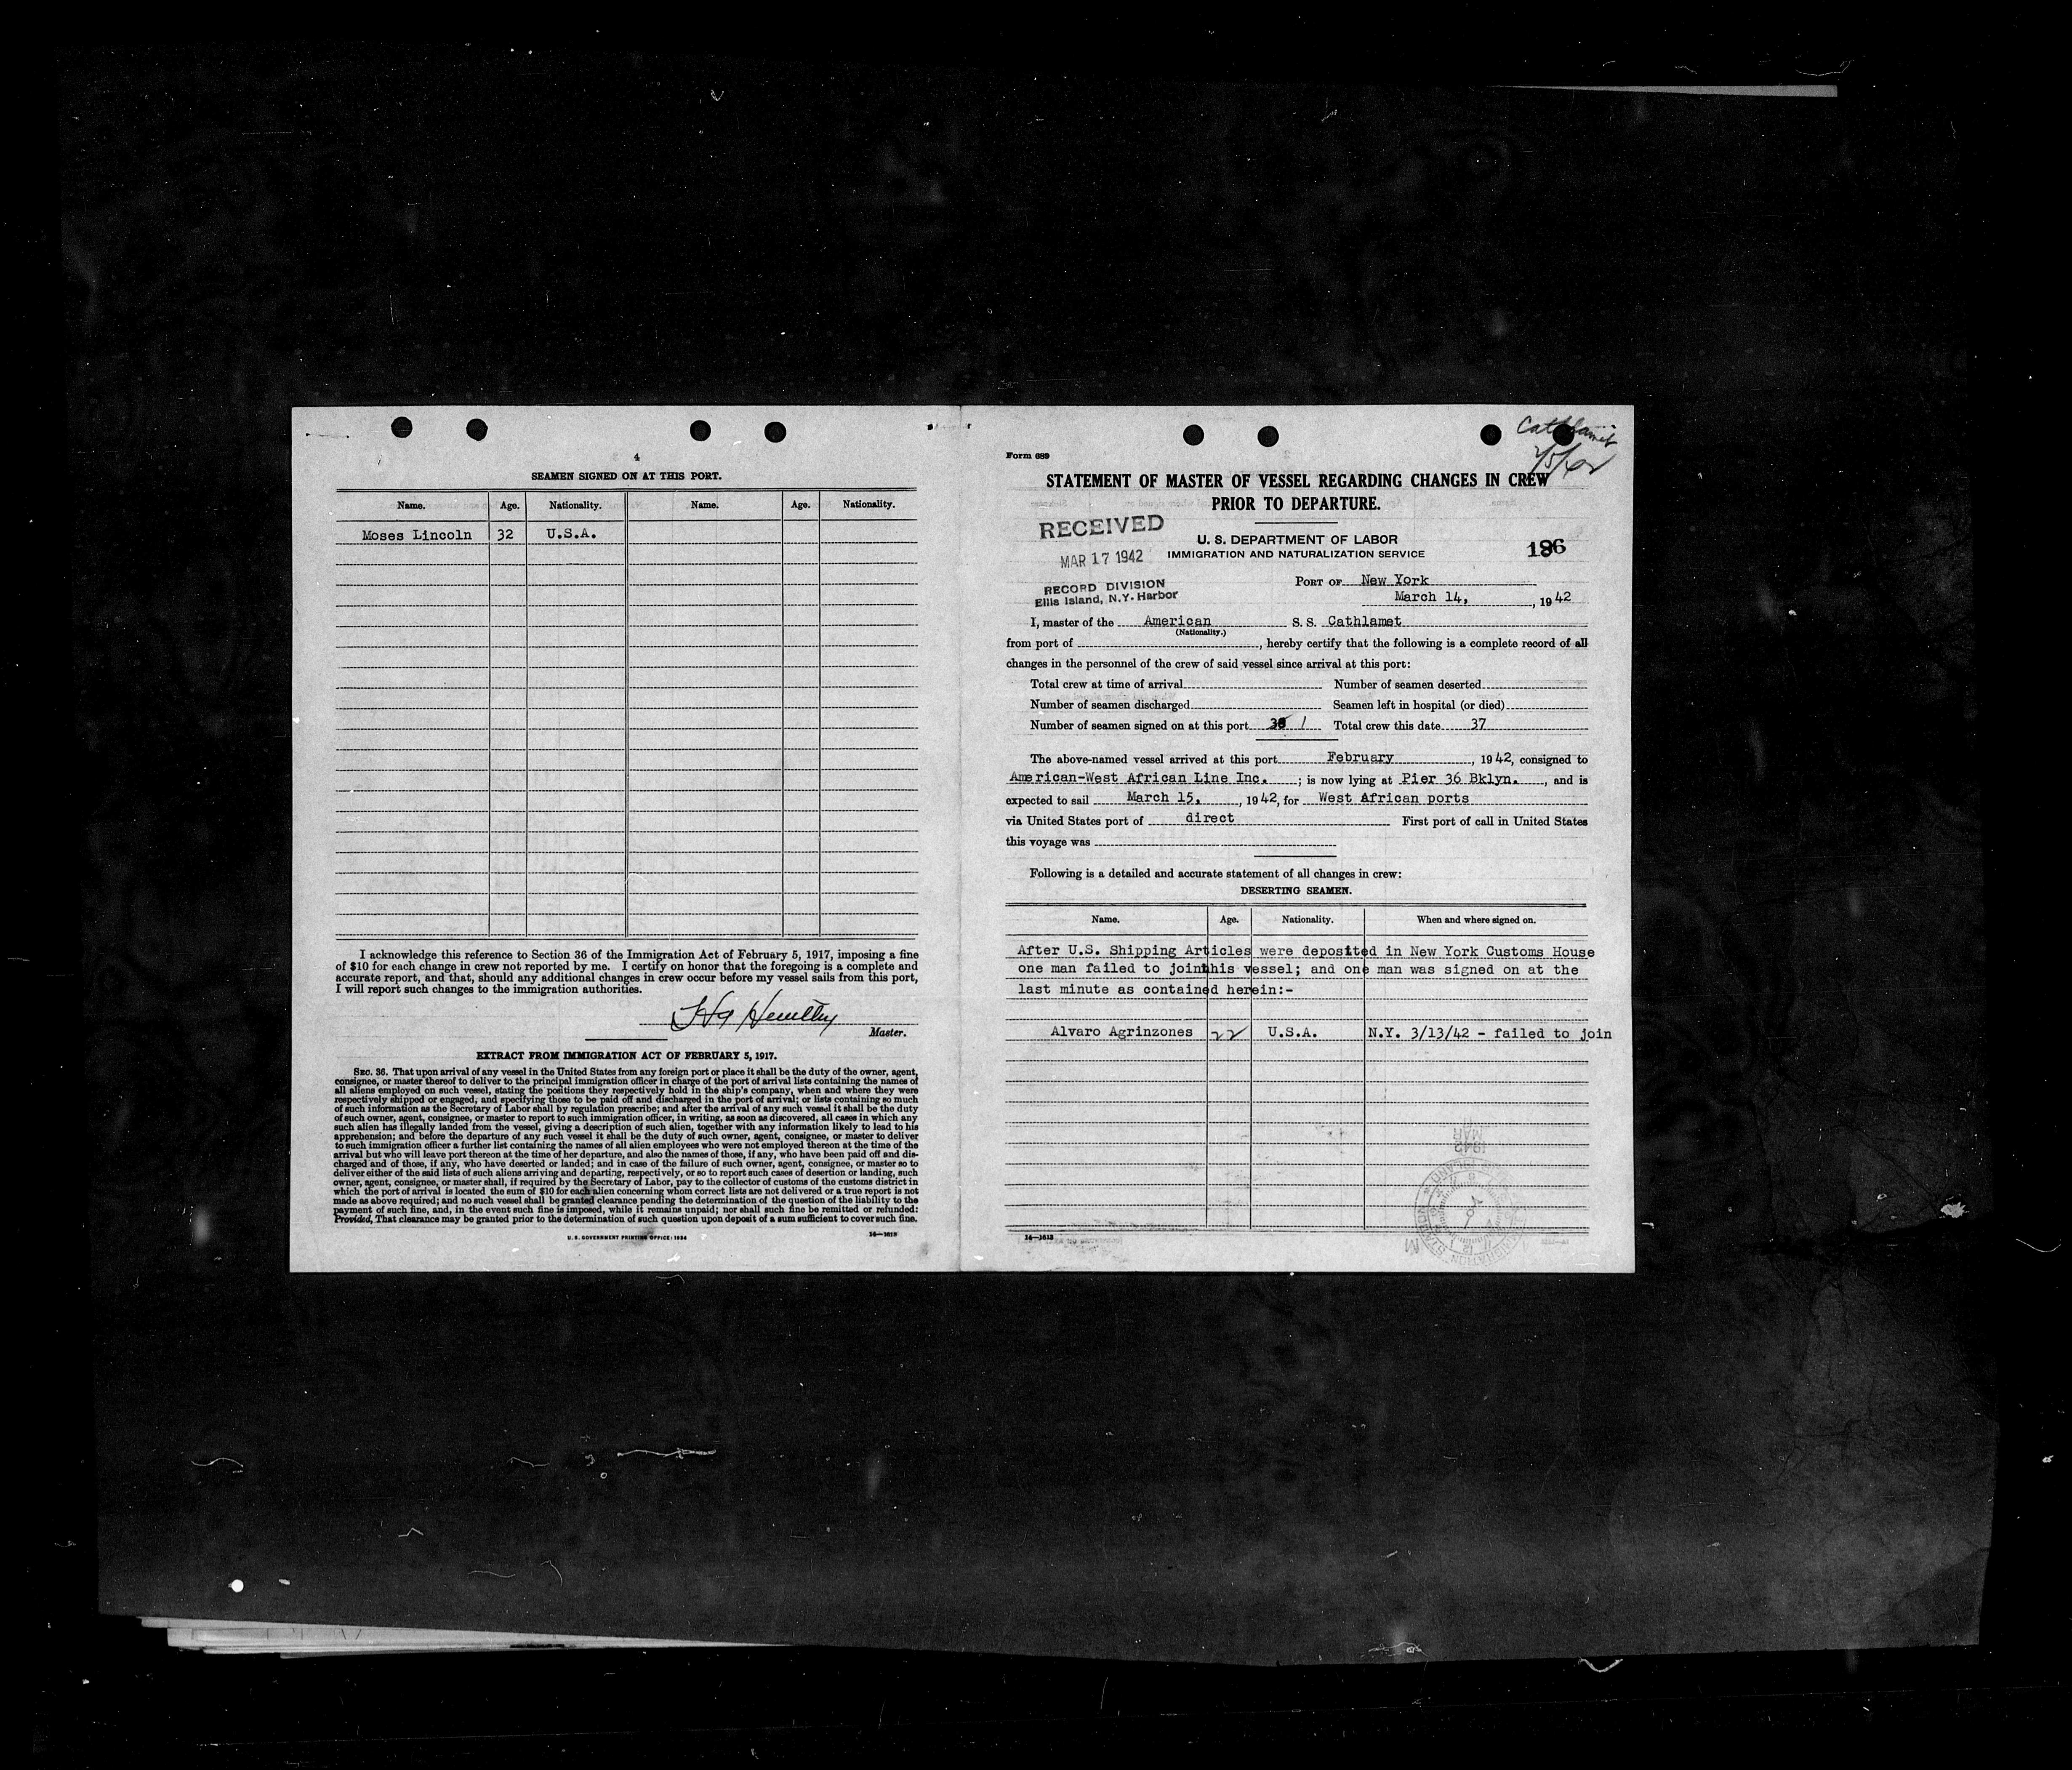 4
SEAMEN SIGNED ON AT THIS PORT.
Name. Age. Nationality. Name. Age. Nationality.
Moses Lincoln 32 U.S.A.
I acknowledge this reference to Section 36 of the Immigration Act of February 5, 1917, imposing a fine
of $10 for each change in crew not reported by me. I certify on honor that the foregoing is a complete and
accurate report, and that, should any additional changes in crew occur before my vessel sails from this port,
I will report such changes to the immigration authorities.
Master.
EXTRACT FROM IMMIGRATION ACT OF FEBRUARY 5, 1917.
SEC. 36. That upon arrival of any vessel in the United States from any foreign port or place it shall be the duty of the owner, agent,
consignee, or master thereof to deliver to the principal immigration officer in charge of the port of arrival lists containing the names of
all aliens employed on such vessel, stating the positions they respectively hold in the ship's company, when and where they were
respectively shipped or engaged, and specifying those to be paid off and discharged in the port of arrival; or lists containing so much
of such information as the Secretary of Labor shall by regulation prescribe; and after the arrival of any such vessel it shall be the duty
of such owner, agent, consignee, or master to report to such immigration officer, in writing, as soon as discovered, all cases in which any
such alien has illegally landed from the vessel, giving a description of such alien, together with any information likely to lead to his
apprehension; and before the departure of any such vessel it shall be the duty of such owner, agent, consignee, or master to deliver
to such immigration officer a further list containing the names of all alien employees who were not employed thereon at the time of the
arrival but who will leave port thereon at the time of her departure, and also the names of those, if any, who have been paid off and dis-
charged and of those, if any, who have deserted or landed; and in case of the failure of such owner, agent, consignee, or master so to
deliver either of the said lists of such aliens arriving and departing, respectively, or so to report such cases of desertion or landing, such
owner, agent, consignee, or master shall, if required by the Secretary of Labor, pay to the collector of customs of the customs district in
which the port of arrival is located the sum of $10 for each alien concerning whom correct lists are not delivered or a true report is not
made as above required; and no such vessel shall be granted clearance pending the determination of the question of the liability to the
payment of such fine, and, in the event such fine is imposed, while it remains unpaid; nor shall such fine be remitted or refunded:
Provided, That clearance may be granted prior to the determination of such question upon deposit of a sum sufficient to cover such fine.
U. S. GOVERNMENT PRINTING OFFICE: 1934 14—1613
Cathlamet
Form 689
STATEMENT OF MASTER OF VESSEL REGARDING CHANGES IN CREW
PRIOR TO DEPARTURE.
RECEIVED
MAR 17 1942
RECORD DIVISION
Ellis Island, N.Y. Harbor
U. S. DEPARTMENT OF LABOR
IMMIGRATION AND NATURALIZATION SERVICE
186
PORT OF New York
March 14, , 1942
I, master of the American S. S. Cathlamet
(Nationality.)
from port of , hereby certify that the following is a complete record of all
changes in the personnel of the crew of said vessel since arrival at this port:
Total crew at time of arrival Number of seamen deserted
Number of seamen discharged Seamen left in hospital (or died)
Number of seamen signed on at this port 1 Total crew this date 37
The above-named vessel arrived at this port February , 1942, consigned to
American-West African Line Inc. ; is now lying at Pier 36 Bklyn. , and is
expected to sail March 15, , 1942, for West African ports
via United States port of direct First port of call in United States
this voyage was
Following is a detailed and accurate statement of all changes in crew:
DESERTING SEAMEN.
Name. Age. Nationality. When and where signed on.
After U.S. Shipping Articles were deposited in New York Customs House
one man failed to join this vessel; and one man was signed on at the
last minute as contained herein:-
Alvaro Agrinzones 22 U.S.A. N.Y. 3/13/42 - failed to join
14—1613